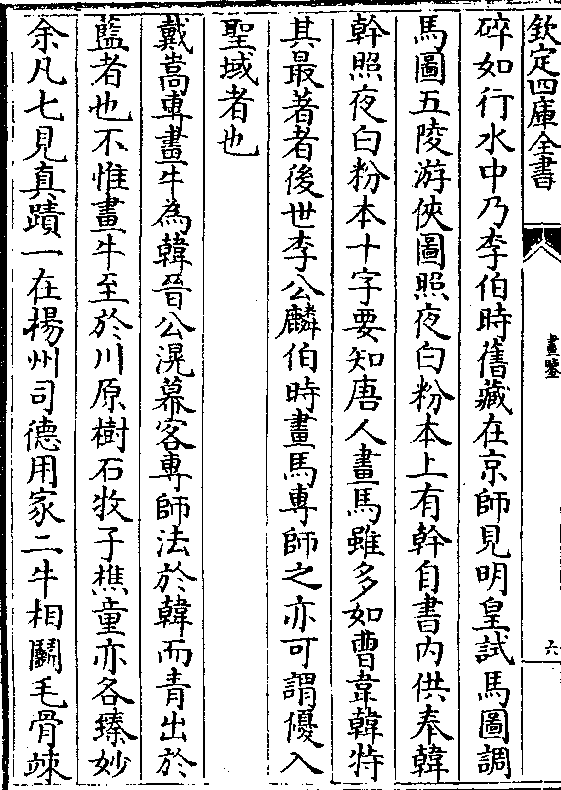 欽定四庫全書
畫鑒
六
碎如行水中乃李伯時舊藏在京師見明皇試馬圖調
馬圖五陵游俠圖照夜白粉本上有幹自書内供奉韓
幹照夜白粉本十字要知唐人畫馬雖多如曹韋韓特
其最著者後世李公麟伯時畫馬專師之亦可謂優入
聖域者也
戴嵩專畫牛為韓晉公滉幕客專師法於韓而青出於
藍者也不惟畫牛至於川原樹石牧子樵童亦各臻妙
余凡七見真蹟一在楊州司德用家二牛相鬭毛骨竦